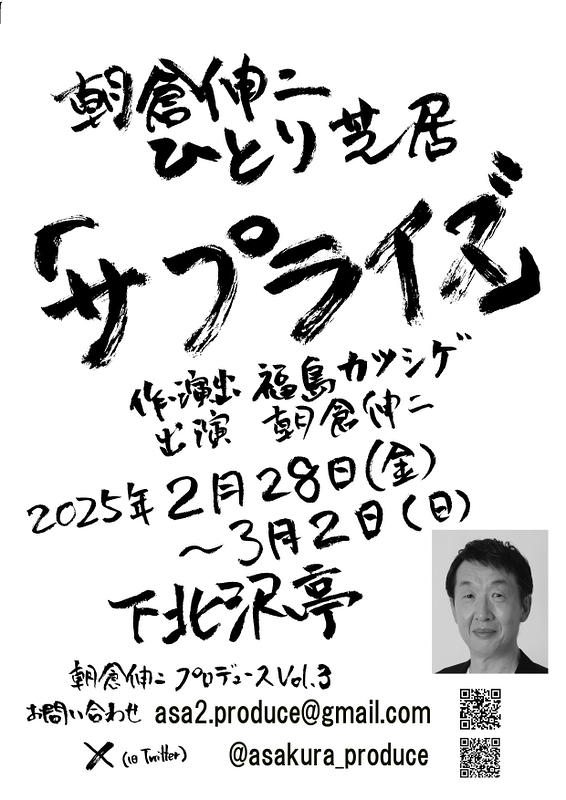 朝倉伸二
ひとり芝居
「サプライズ」
作・演出 福島カツシゲ
出演 朝倉伸二
2025年2月28日(金)
～3月2日(日)
下北沢亭
朝倉伸二プロデュースVol.3
お問い合わせ asa2.produce@gmail.com
X (旧Twitter) @asakura_produce